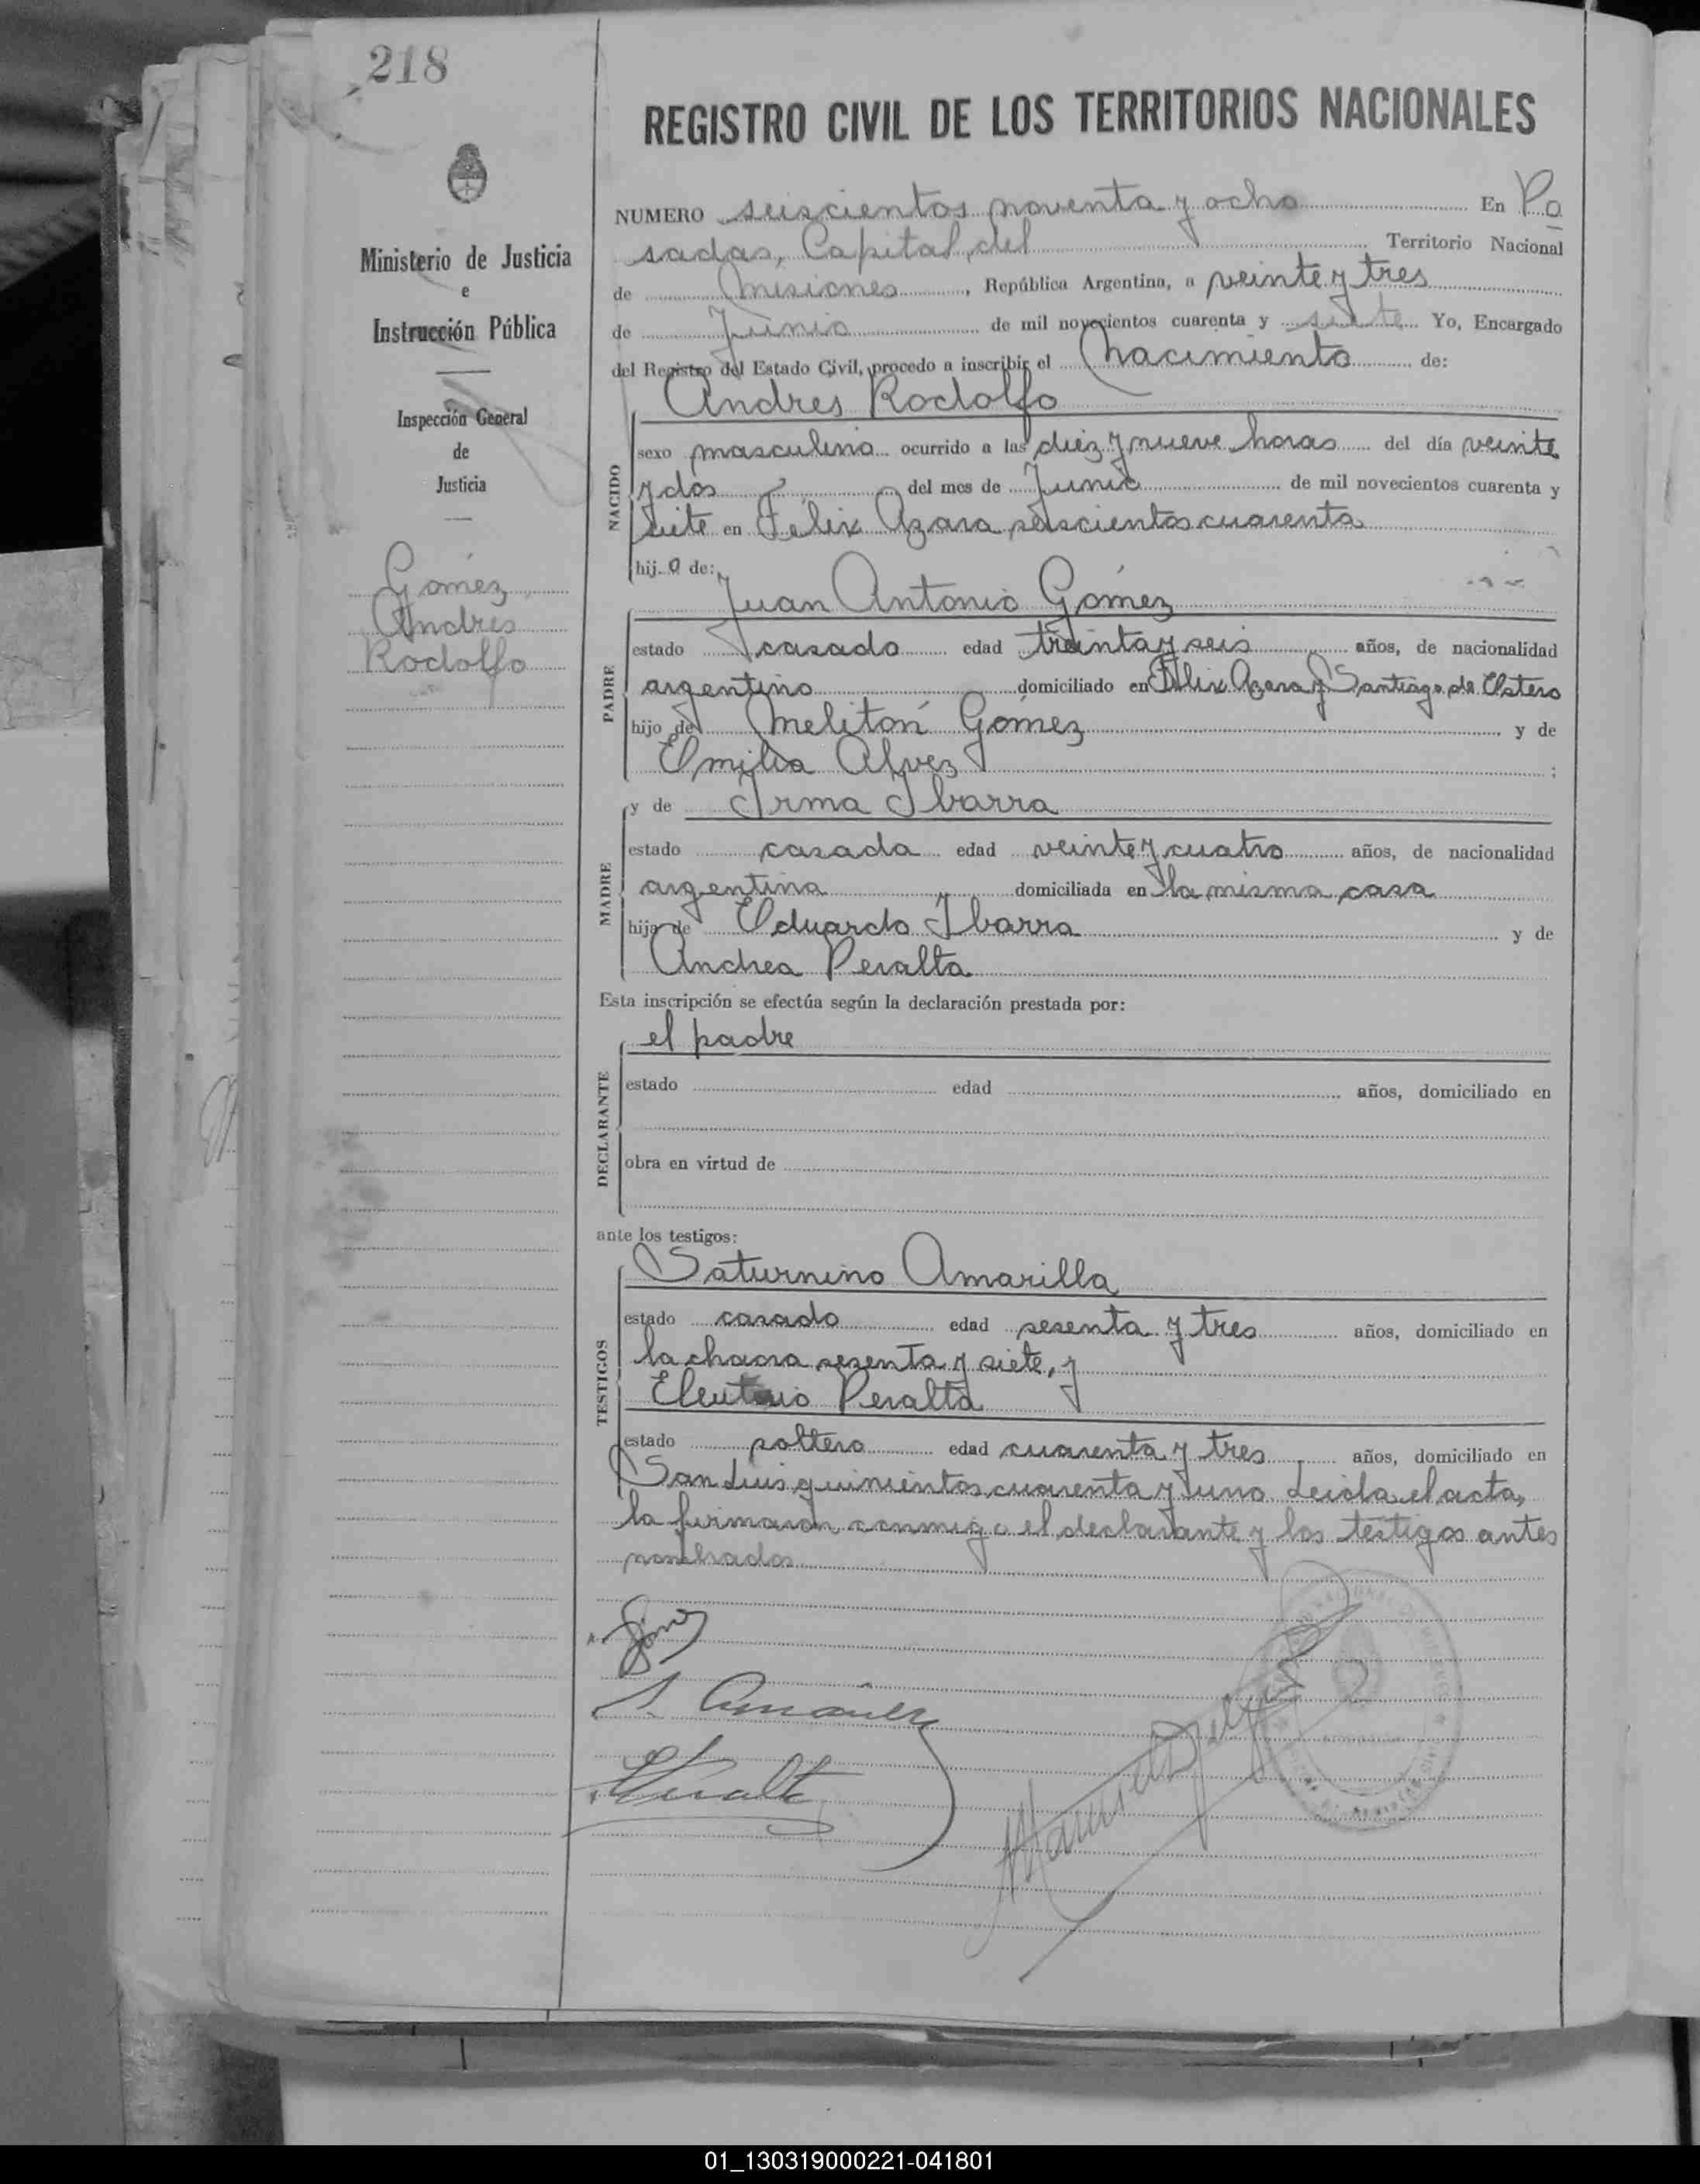 218
REGISTRO CIVIL DE LOS TERRITORIOS NACIONALES
Ministerio de Justicia
e
Instrucción Pública
Inspección General
de
Justicia
Gomez
Andres
Rodolfo
NUMERO seiscientos noventa y ocho En Po
sadas, Capital del Territorio Nacional
de Misiones, República Argentina, a veinte y tres
de Junio de mil novecientos cuarenta y siete Yo, Encargado
del Registro del Estado Civil, procedo a inscribir el nacimiento de:
Andres Rodolfo
NACIDO
sexo masculino ocurrido a las diez y nueve horas del día veinte
y dos del mes de Junio de mil novecientos cuarenta y
siete en Félix Azara seiscientos cuarenta
hijo de:
Juan Antonio Gómez
PADRE
estado casado edad treinta y seis años, de nacionalidad
argentino domiciliado en Félix Azara y Santiago de Estero
hijo de Melitón Gómez y de
Emilia Alvez ;
MADRE
y de Irma Ibarra
estado casada edad veinte y cuatro años, de nacionalidad
argentina domiciliada en la misma casa
hija de Eduardo Ibarra y de
Andrea Peralta
Esta inscripción se efectúa según la declaración prestada por:
el padre
DECLARANTE
estado edad años, domiciliado en
obra en virtud de
ante los testigos:
Saturnino Amarilla
TESTIGOS
estado casado edad sesenta y tres años, domiciliado en
la chacra sesenta y siete, y
Eleuterio Peralta
estado soltero edad cuarenta y tres años, domiciliado en
San Luis quinientos cuarenta y uno Leida el acta,
la firmaron conmigo el declarante y los testigos antes
nombrados
S. Amarilla
E Peralta
01_130319000221-041801